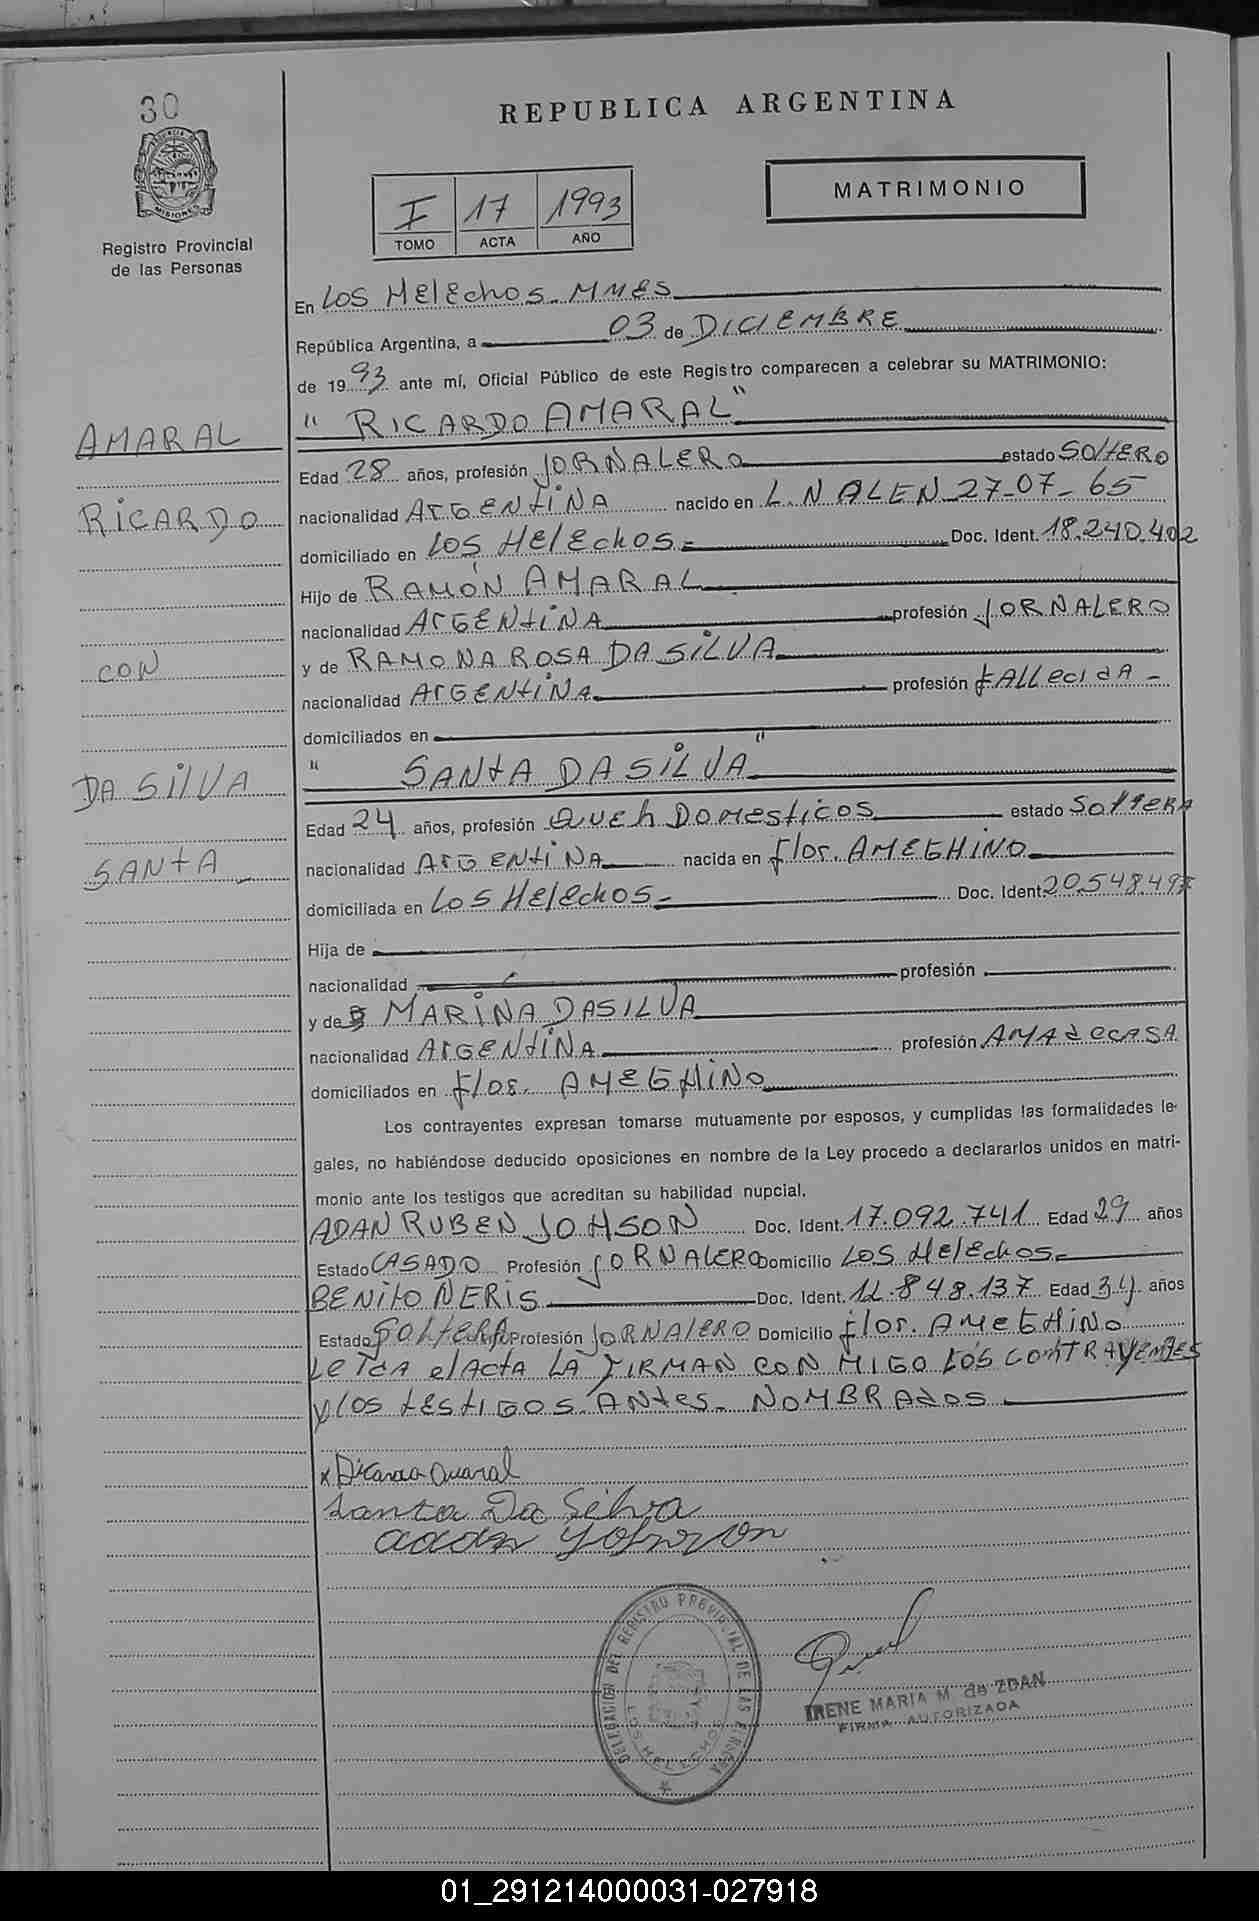 30
PROVINCIA DE
MISIONES
Registro Provincial
de las Personas
REPUBLICA ARGENTINA
I 17 1993
TOMO ACTA AÑO
MATRIMONIO
En LOS HElEchos. MNES
República Argentina, a 03 de DICIEMBRE
de 1993 ante mí, Oficial Público de este Registro comparecen a celebrar su MATRIMONIO:
" RICARDO AMARAL"
AMARAL
RICARDO
CON
DA SilVA
SANtA
Edad 28 años, profesión JORNALERO estado SOltERO
nacionalidad ArGENtiNA nacido en L. N ALEN 27-07-65
domiciliado en LOS HElEchos Doc. Ident. 18.240.402
Hijo de RAMÓN AMARAL
nacionalidad ArGENtiNA profesión JORNALERO
y de RAMONA ROSA DA SiLVA
nacionalidad ArGENtiNA profesión fALLecidA -
domiciliados en
" SANtA DA SiLVA "
Edad 24 años, profesión QUEh DOMEsticos estado SoltERA
nacionalidad ArGENtiNA nacida en flor. AMEGHINO
domiciliada en LOS HElEchos Doc. Ident. 20.548.497
Hija de
nacionalidad profesión
y de MARiNA DASILVA
nacionalidad ArGENtiNA profesión AMA dE CASA
domiciliados en flor. AMEGHiNO
Los contrayentes expresan tomarse mutuamente por esposos, y cumplidas las formalidades le-
gales, no habiéndose deducido oposiciones en nombre de la Ley procedo a declararlos unidos en matri-
monio ante los testigos que acreditan su habilidad nupcial.
ADAN RUBEN JOHSON Doc. Ident. 17.092.741 Edad 29 años
Estado CASADO Profesión JORNALERO Domicilio LOS HElEchos
BENitO ÑERIS Doc. Ident. 12.848.137 Edad 34 años
Estado Profesión JORNAlERO Domicilio flor. AMEGHiNO
LEIdA el ActA LA FIRMAN CON MIGO LOS CONTRAYENTES
y los tEStIGOS ANtes NOMBRAdOS
x Ricardo Amaral
Santa Da Silva
adan Johnson
DELEGACION DEL REGISTRO PROVINCIAL DE LAS PERSONAS
LOS HELECHOS
IRENE MARIA M. de ZDAN
FIRMA AUTORIZADA
01_291214000031-027918